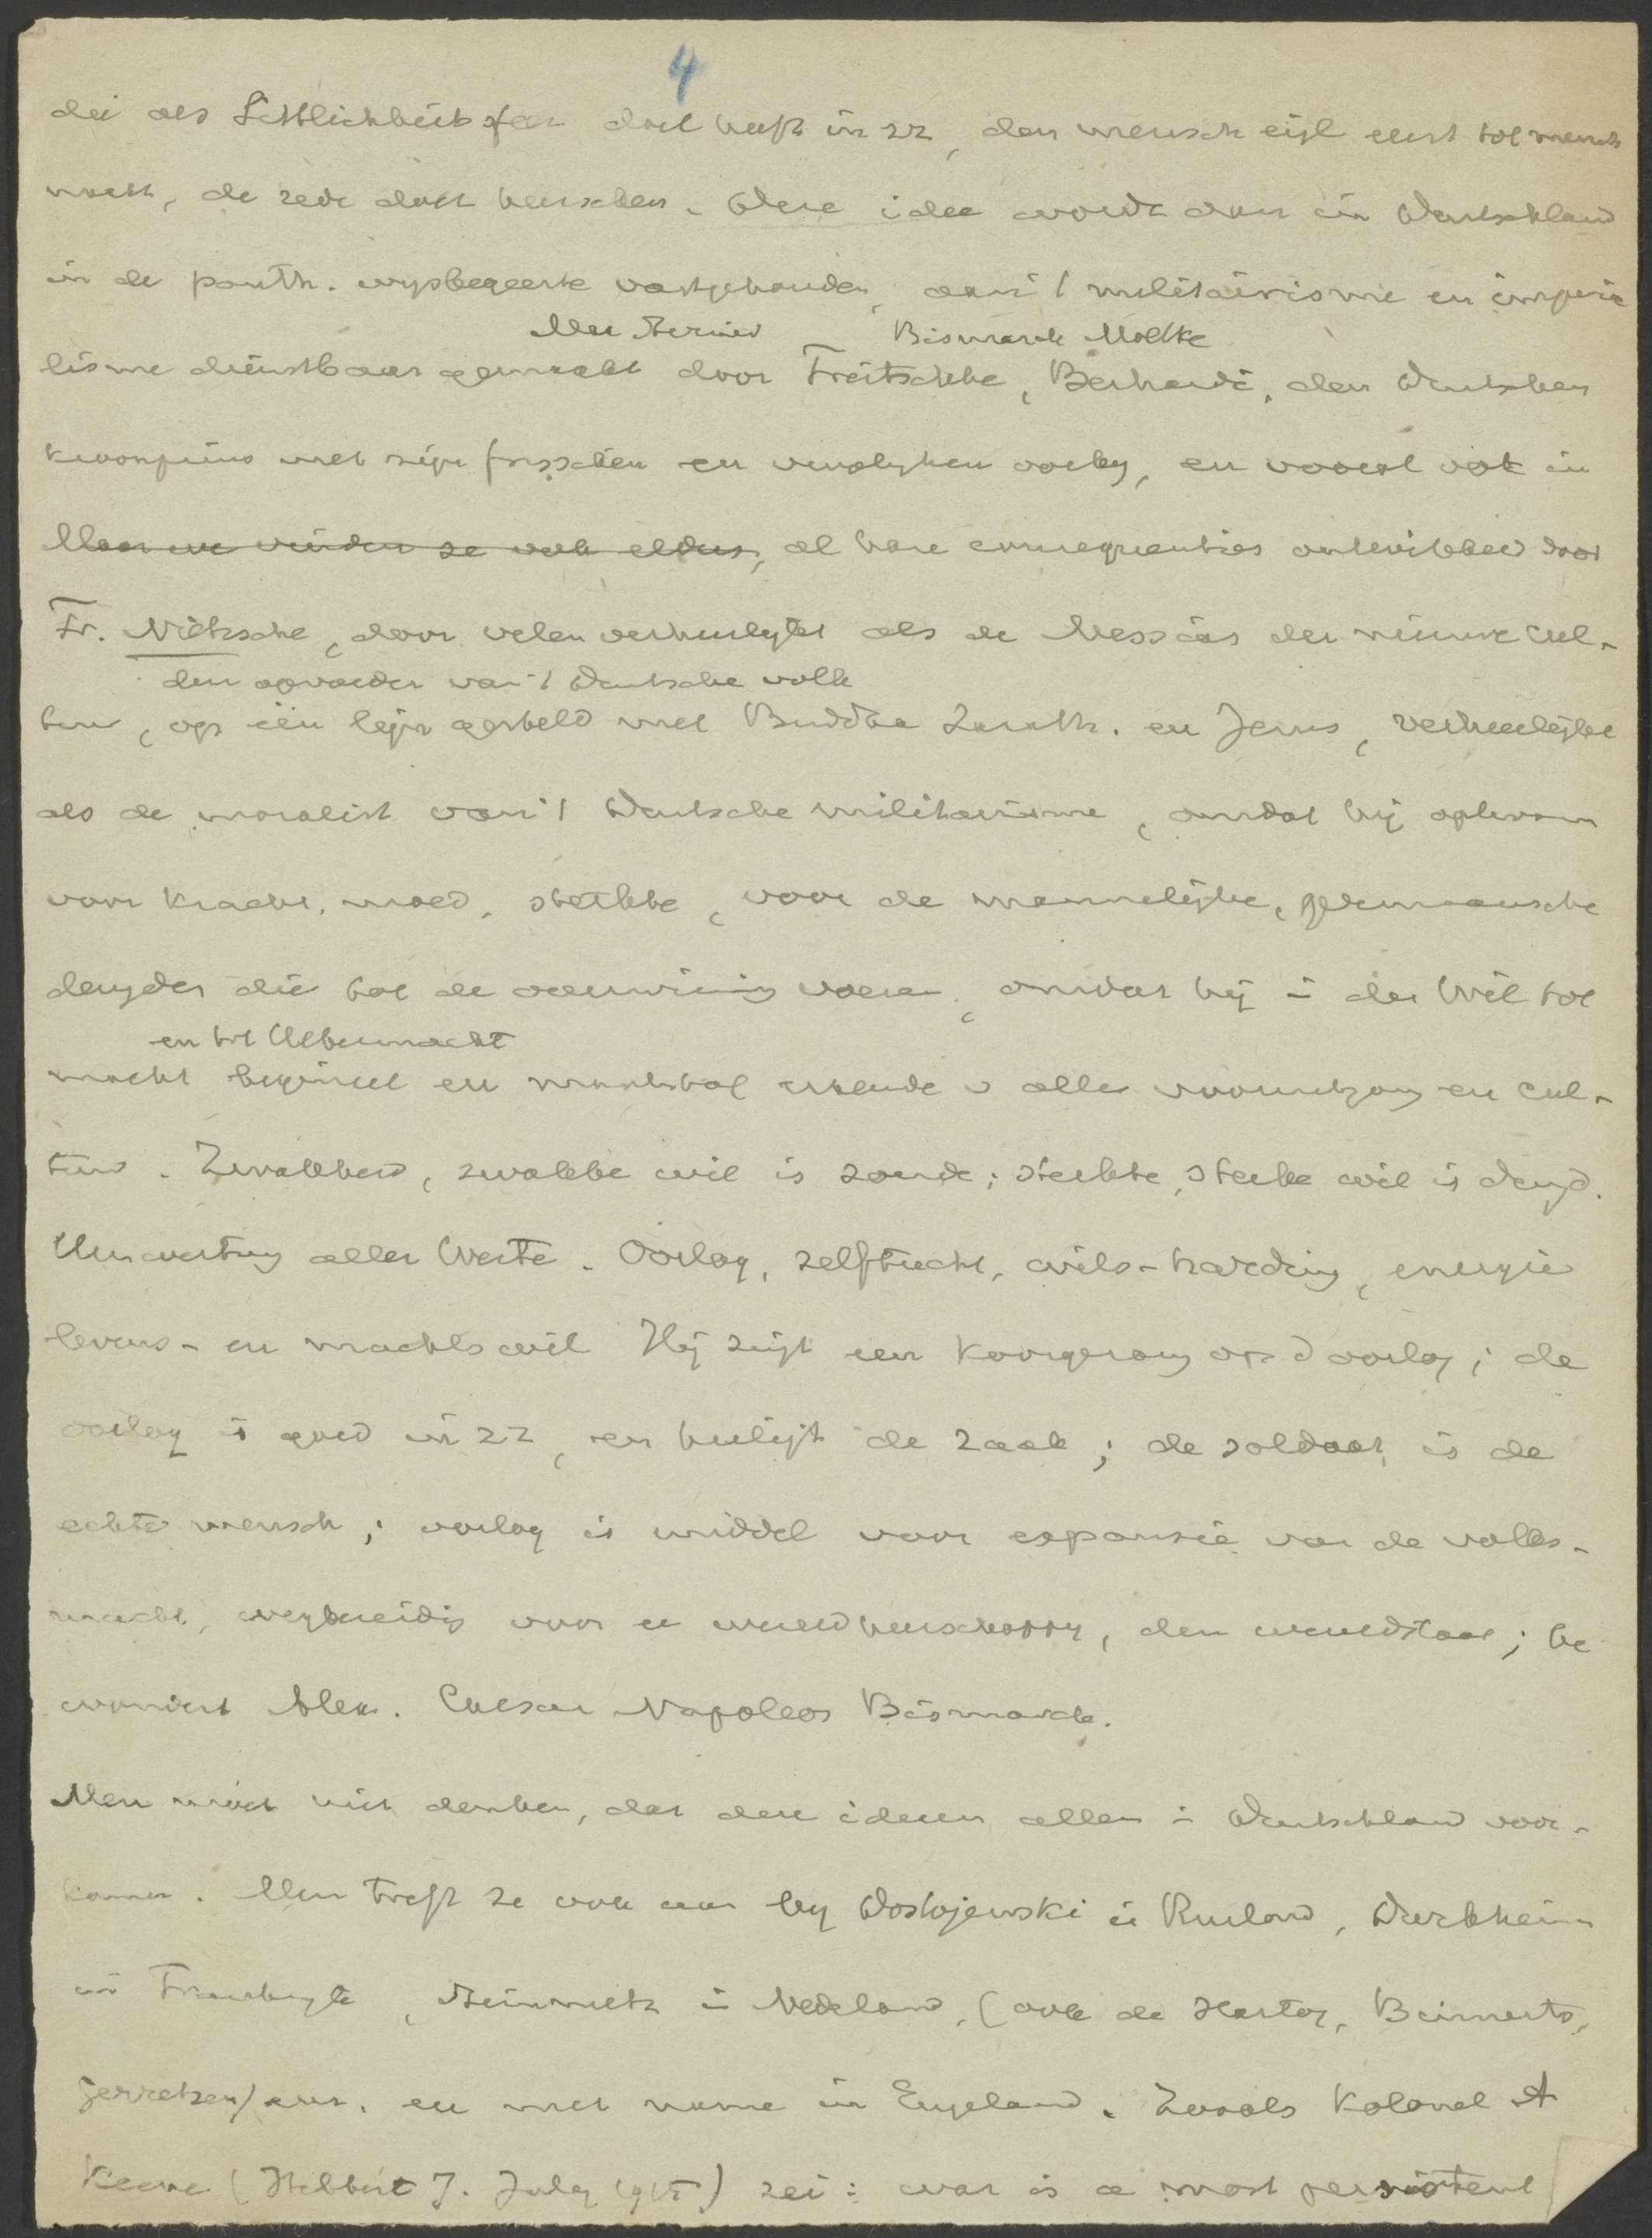 4
die als Sittlichkeit haar doel heeft in zz, den mensch eigl eerst tot mensch
maakt, de rede doet heerschen. Deze idee wordt dan in Duitschland
in de panth. wijsbegeerte vastgehouden, aan 't militairisme en imperia
Bismarck Moltke
lisme dienstbaar gemaakt door Treitschke, Bernhardi, den Duitschen
kroonprins met zijn frisschen en vroolijken oorlog, en vooral ook in
Maar we vinden ze ook elders, al hare consequenties ontwikkeld door
Fr. Nietzsche, door velen verheerlijkt als de Messias der nieuwe cul-
den opvoeder van 't Duitsche volk
tuur, op één lijn gesteld met Buddha Zarath. en Jezus, verheerlijkt
als de moralist van 't Duitsche militarisme, omdat hij opkwam
voor kracht, moed, sterkte, voor de mannelijke, germaansche
deugden die tot de overwining voeren, omdat hij in den Wil tot
en tot Uebermacht
macht beginsel en maatstaf erkende v alle vooruitgang en cul-
tuur. Zwakheid, zwakke wil is zonde; sterkte, sterke wil is deugd.
Umwertung aller Werte. Oorlog, zelftucht, wils-harding, energie
levens- en machtswil Hij zingt een koorgezang op d oorlog; de
oorlog is goed in zz, en heiligt de zaak; de soldaat is de
echte mensch; oorlog is middel voor expansie van de volks-
macht, wegbereiding voor de wereldheerschappy, den wereldstaat; be
wondert Alex. Caesar Napoleon Bismarck.
Men moet niet denken, dat deze ideeen alleen in Duitschland voor-
komen. Men treft ze ook aan by Dostojewski in Rusland, Durkheim
in Frankryk, Steinmetz in Nederland, (ook de Hartog, Beimerts,
Gerretsen) enz. en met name in Engeland. Zooals Kolonel A
Keene (Hibbert J. July 1915) zei: war is a most persistent